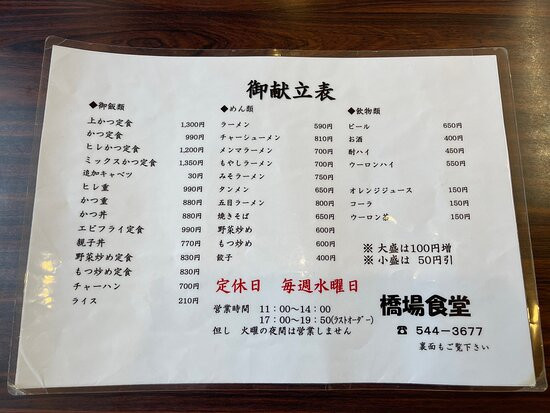 御献立表
◆御飯類
上かつ定食 1,300円
かつ定食 990円
ヒレかつ定食 1,200円
ミックスかつ定食 1,350円
追加キャベツ 30円
ヒレ重 990円
かつ重 880円
かつ丼 880円
エビフライ定食 990円
親子丼 770円
野菜炒め定食 830円
もつ炒め定食 830円
チャーハン 700円
ライス 210円
◆めん類
ラーメン 590円
チャーシューメン 810円
メンマラーメン 700円
もやしラーメン 700円
みそラーメン 750円
タンメン 650円
五目ラーメン 800円
焼きそば 650円
野菜炒め 600円
もつ炒め 600円
餃子 400円
◆飲物類
ビール 650円
お酒 400円
酎ハイ 450円
ウーロンハイ 550円
オレンジジュース 150円
コーラ 150円
ウーロン茶 150円
※ 大盛は100円増
※ 小盛は 50円引
定休日 毎週水曜日
営業時間 11:00〜14:00
17:00〜19:50(ラストオーダー)
但し 火曜の夜間は営業しません
橋場食堂
☎ 544-3677
裏面もご覧下さい